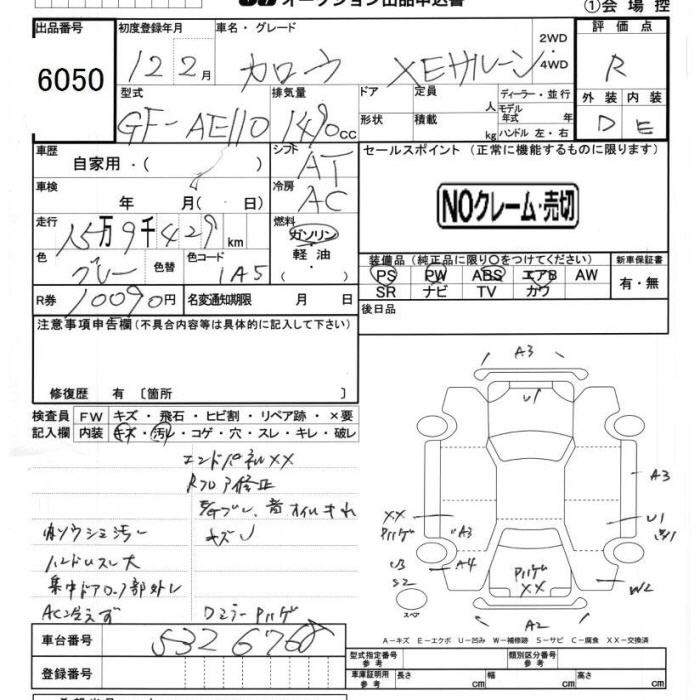 オークション出品申込書
①会場控
出品番号 初度登録年月 車名・グレード 2WD 評価点
6050 12 2月 カローラ XEサルーン 4WD R
型式 排気量 ドア 定員 人 ディーラー・並行 外装 内装
GF-AE110 1490cc 形状 積載 kg モデル年式 年 D E
ハンドル 左・右
車歴 自家用・( ) シフト AT セールスポイント (正常に機能するものに限ります)
車検 年 月(日) 冷房 AC NOクレーム・売切
走行 15万9千429km 燃料 ガソリン・軽油・( )
色 グレー 色替 色コード 1A5 装備品 (純正品に限り○をつけてください) 新車保証書
PS PW ABS エアB AW 有・無
R券 10090円 名変通知期限 月 日 SR ナビ TV カワ
注意事項申告欄(不具合内容等は具体的に記入して下さい) 後日品
修復歴 有 〔箇所 〕
検査員 FW キズ・飛石・ヒビ割・リペア跡・×要
記入欄 内装 キズ・汚レ・コゲ・穴・スレ・キレ・破レ
エンドパネルXX
Rフロア修正
オイルもれ
内ソウシミ汚レ キズU
ハンドルスレ大
集中ドアロック部外レ
AC冷えず Dミラーハゲ
A3
U1
A3
XX ハゲ A3 U1
U3 S2 A4 ハゲ XX W2
スペア
A2
A-キズ E-エクボ U-凹み W-補修跡 S-サビ C-腐食 XX-交換済
車台番号 5326768
型式指定番号 参考 類別区分番号 参考
登録番号 車庫証明用 参考 長さ cm 幅 cm 高さ cm